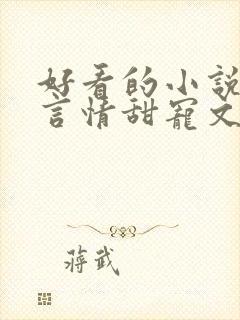 好看的小說
言情甜寵文
蔣武